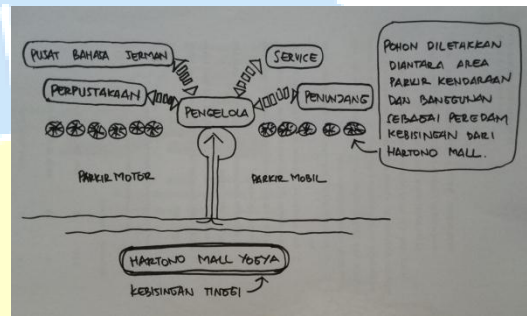 PUSAT BAHASA JERMAN
SERVICE
PERPUSTAKAAN
PENGELOLA
PENUNJANG
POHON DILETAKKAN
DIANTARA AREA
PARKIR KENDARAAN
DAN BANGUNAN
SEBAGAI PEREDAM
KEBISINGAN DARI
HARTONO MALL.
PARKIR MOTOR
PARKIR MOBIL
HARTONO MALL YOGYA
KEBISINGAN TINGGI